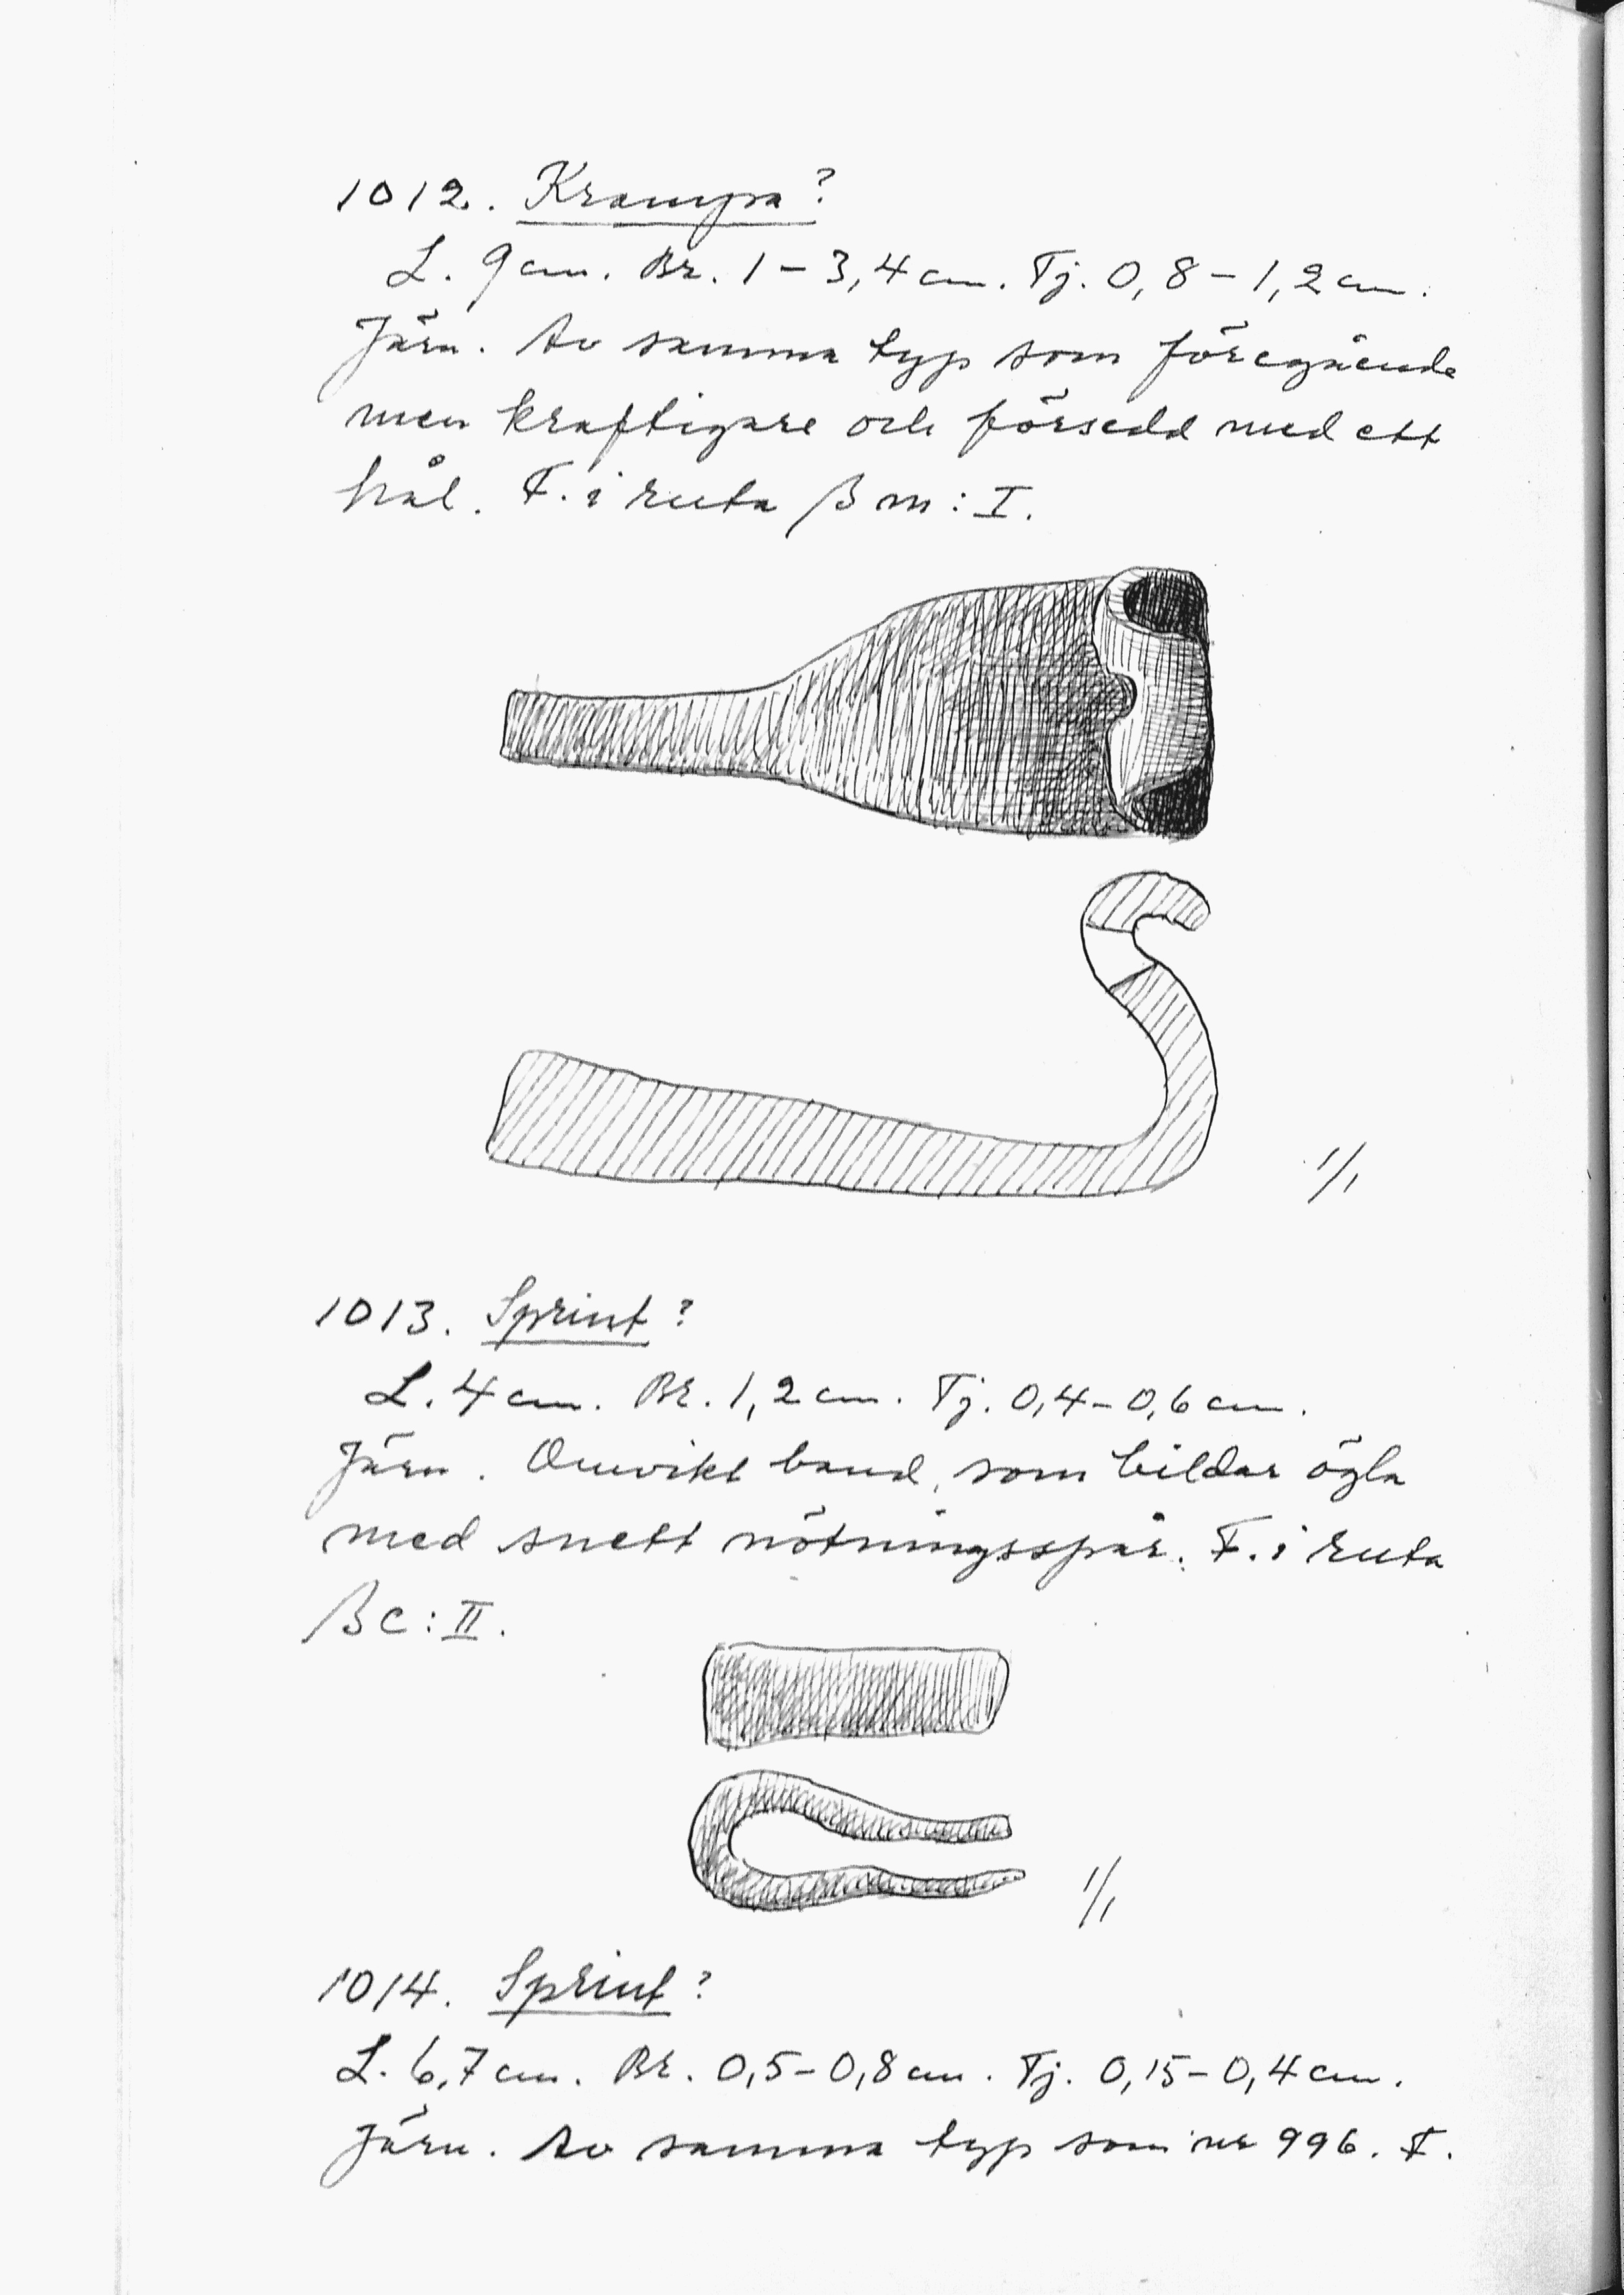 1012. Krampa?
L. 9 cm. Br. 1–3,4 cm. Tj. 0,8–1,2 cm.
Järn. Av samma typ som föregående
men kraftigare och försedd med ett
hål. F. i ruta β m : I.
1/1
1013. Sprint?
L. 4 cm. Br. 1,2 cm. Tj. 0,4–0,6 cm.
Järn. Omvikt band, som bildar ögla
med snett nötningsspår. F. i ruta
β c : II.
1/1
1014. Sprint?
L. 6,7 cm. Br. 0,5–0,8 cm. Tj. 0,15–0,4 cm.
Järn. Av samma typ som nr 996. F.